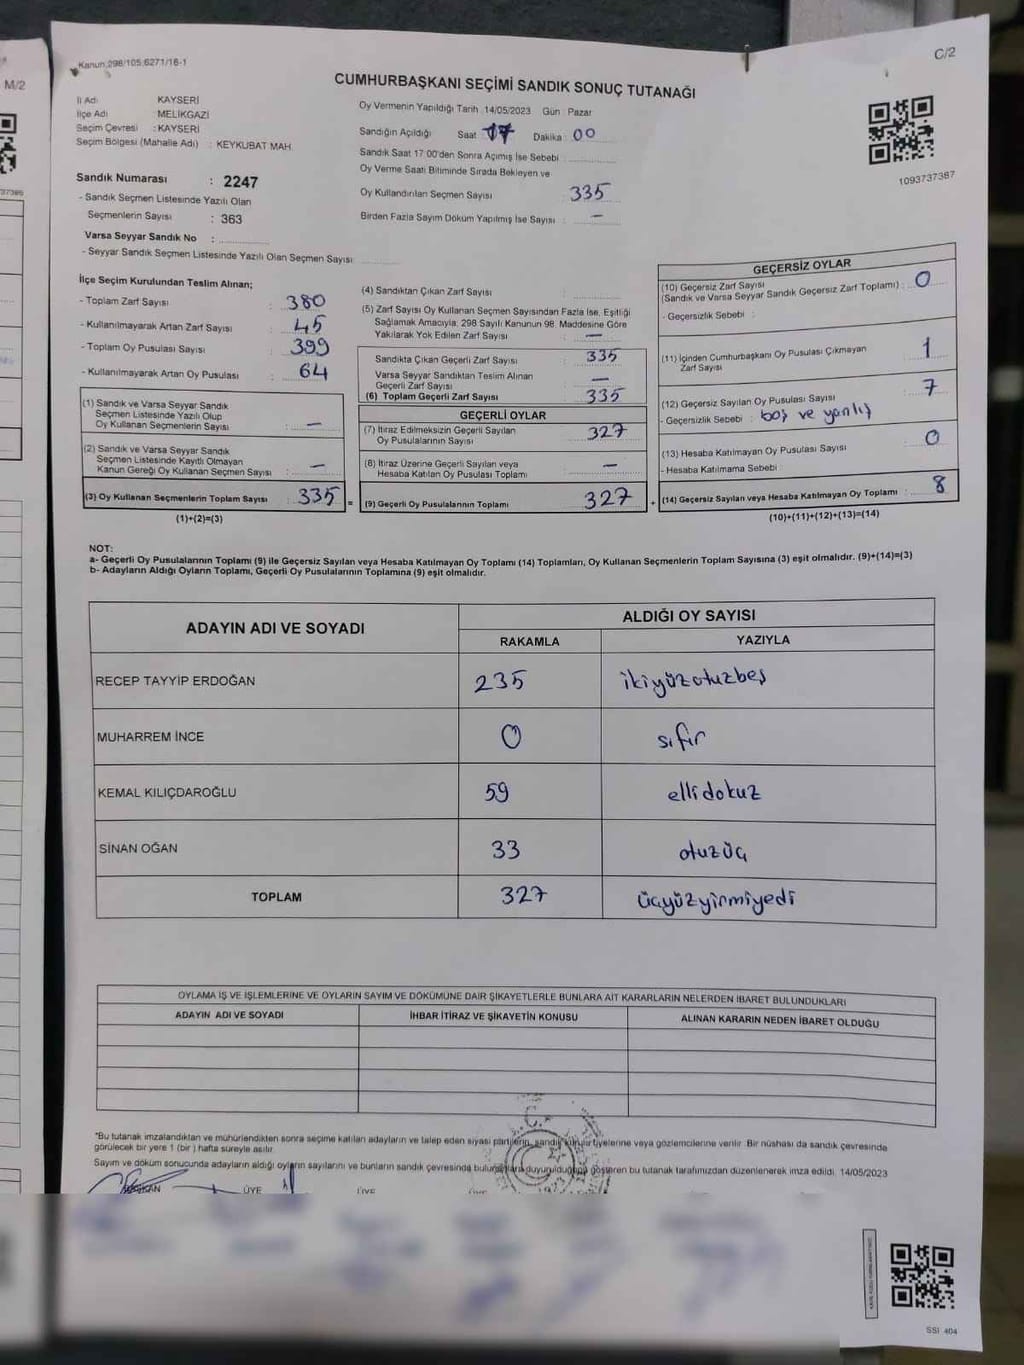 M/2
Kanun 298/105,6271/16-1
C/2
CUMHURBAŞKANI SEÇİMİ SANDIK SONUÇ TUTANAĞI
İl Adı KAYSERİ
İlçe Adı MELİKGAZİ
Seçim Çevresi : KAYSERİ
Seçim Bölgesi (Mahalle Adı) : KEYKUBAT MAH.
Sandık Numarası : 2247
- Sandık Seçmen Listesinde Yazılı Olan
Seçmenlerin Sayısı : 363
Varsa Seyyar Sandık No :
- Seyyar Sandık Seçmen Listesinde Yazılı Olan Seçmen Sayısı
Oy Vermenin Yapıldığı Tarih :14/05/2023 Gün : Pazar
Sandığın Açıldığı Saat 17 Dakika : 00
Sandık Saat 17 00'den Sonra Açımış İse Sebebi :
Oy Verme Saati Bitiminde Sırada Bekleyen ve
Oy Kullandırılan Seçmen Sayısı : 335
Birden Fazla Sayım Döküm Yapılmış İse Sayısı : —
1093737387
İlçe Seçim Kurulundan Teslim Alınan;
- Toplam Zarf Sayısı : 380
- Kullanılmayarak Artan Zarf Sayısı : 45
- Toplam Oy Pusulası Sayısı : 399
- Kullanılmayarak Artan Oy Pusulası : 64
(1) Sandık ve Varsa Seyyar Sandık
Seçmen Listesinde Yazılı Olup
Oy Kullanan Seçmenlerin Sayısı : —
(2) Sandık ve Varsa Seyyar Sandık
Seçmen Listesinde Kayıtlı Olmayan
Kanun Gereği Oy Kullanan Seçmen Sayısı : —
(3) Oy Kullanan Seçmenlerin Toplam Sayısı : 335 =
(1)+(2)=(3)
(4) Sandıktan Çıkan Zarf Sayısı :
(5) Zarf Sayısı Oy Kullanan Seçmen Sayısından Fazla İse, Eşitliği
Sağlamak Amacıyla; 298 Sayılı Kanunun 98. Maddesine Göre
Yakılarak Yok Edilen Zarf Sayısı : —
Sandıkta Çıkan Geçerli Zarf Sayısı : 335
Varsa Seyyar Sandıktan Teslim Alınan
Geçerli Zarf Sayısı : —
(6) Toplam Geçerli Zarf Sayısı : 335
GEÇERLİ OYLAR
(7) İtiraz Edilmeksizin Geçerli Sayılan
Oy Pusulalarının Sayısı : 327
(8) İtiraz Üzerine Geçerli Sayılan veya
Hesaba Katılan Oy Pusulası Toplamı : —
(9) Geçerli Oy Pusulalarının Toplamı : 327 +
GEÇERSİZ OYLAR
(10) Geçersiz Zarf Sayısı
(Sandık ve Varsa Seyyar Sandık Geçersiz Zarf Toplamı) : 0
- Geçersizlik Sebebi :
(11) İçinden Cumhurbaşkanı Oy Pusulası Çıkmayan
Zarf Sayısı : 1
(12) Geçersiz Sayılan Oy Pusulası Sayısı : 7
- Geçersizlik Sebebi : boş ve yanlış
(13) Hesaba Katılmayan Oy Pusulası Sayısı : 0
- Hesaba Katılmama Sebebi :
(14) Geçersiz Sayılan veya Hesaba Katılmayan Oy Toplamı : 8
(10)+(11)+(12)+(13)=(14)
NOT:
a- Geçerli Oy Pusulalarının Toplamı (9) ile Geçersiz Sayılan veya Hesaba Katılmayan Oy Toplamı (14) Toplamları, Oy Kullanan Seçmenlerin Toplam Sayısına (3) eşit olmalıdır. (9)+(14)=(3)
b- Adayların Aldığı Oyların Toplamı, Geçerli Oy Pusulalarının Toplamına (9) eşit olmalıdır.
ADAYIN ADI VE SOYADI ALDIĞI OY SAYISI
RAKAMLA YAZIYLA
RECEP TAYYİP ERDOĞAN 235 ikiyüzotuzbeş
MUHARREM İNCE 0 sıfır
KEMAL KILIÇDAROĞLU 59 ellidokuz
SİNAN OĞAN 33 otuzüç
TOPLAM 327 üçyüzyirmiyedi
OYLAMA İŞ VE İŞLEMLERİNE VE OYLARIN SAYIM VE DÖKÜMÜNE DAİR ŞİKAYETLERLE BUNLARA AİT KARARLARIN NELERDEN İBARET BULUNDUKLARI
ADAYIN ADI VE SOYADI İHBAR İTİRAZ VE ŞİKAYETİN KONUSU ALINAN KARARIN NEDEN İBARET OLDUĞU
T.C.
"Bu tutanak imzalandıktan ve mühürlendikten sonra seçime katılan adayların ve talep eden siyasi partilerin, sandık kurulu üyelerine veya gözlemcilerine verilir. Bir nüshası da sandık çevresinde
görülecek bir yere 1 (bir) hafta süreyle asılır.
Sayım ve döküm sonucunda adayların aldığı oyların sayılarını ve bunların sandık çevresinde bulunanlara duyurulduğunu gösteren bu tutanak tarafımızdan düzenlenerek imza edildi. 14/05/2023
BAŞKAN ÜYE ÜYE ÜYE
SSI 404